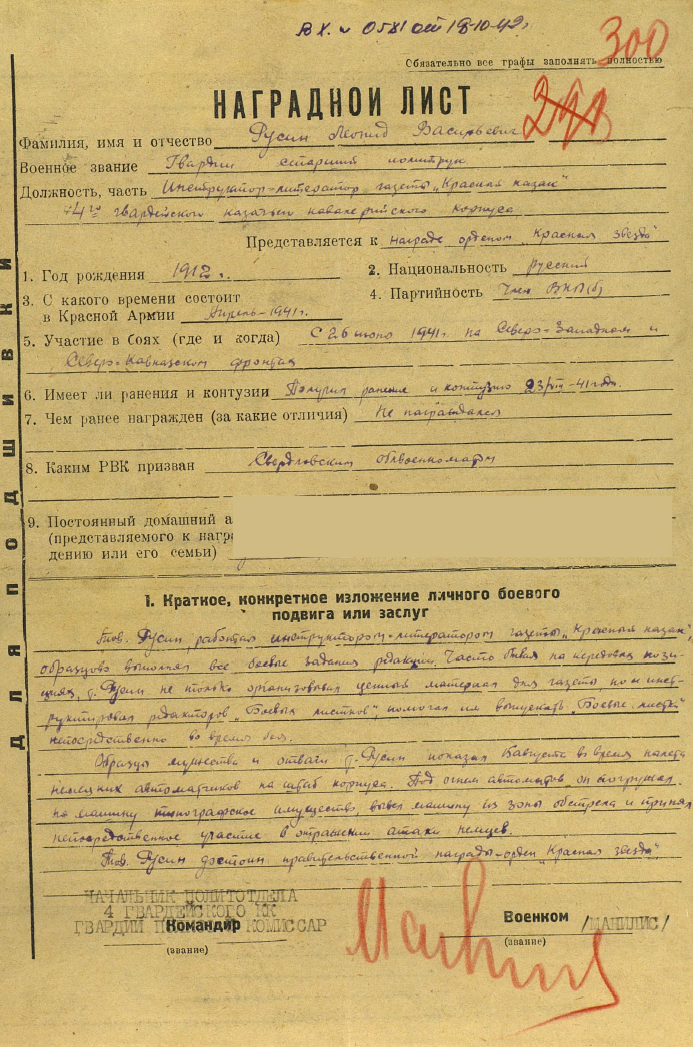 ВХ. № 0581 от 18-10-42г.
300
Обязательно все графы заполнять полностью
НАГРАДНОЙ ЛИСТ
Фамилия, имя и отчество Русин Леонид Васильевич
Военное звание Гвардии старший политрук
Должность, часть Инструктор-литератор газеты „Красный казак“
4го гвардейского казачьего кавалерийского корпуса
Представляется к награде орденом „Красная звезда“
1. Год рождения 1912 г.
2. Национальность русский
3. С какого времени состоит
в Красной Армии Апрель-1941г.
4. Партийность Член ВКП(б)
5. Участие в боях (где и когда) С 26 июю 1941г. на Северо-Западном и
Северо-Кавказском фронтах
6. Имеет ли ранения и контузии Получил ранение и контузию 23/VIII-41 года.
7. Чем ранее награжден (за какие отличия) Не награждался
8. Каким РВК призван Свердловским облвоенкоматом
9. Постоянный домашний а
(представляемого к награ
дению или его семьи)
1. Краткое, конкретное изложение личного боевого
подвига или заслуг
Тов. Русин, работая инструктором-литератором газеты „Красный казак“,
образцово выполнял все боевые задания редакции. Часто бывая на передовых пози-
циях, т. Русин не только организовывал ценный материал для газеты но и инст-
руктировал редакторов „Боевых листков“, помогал им выпускать „Боевые листки“
непосредственно во время боя.
Образцы мужества и отваги т. Русин показал 6 августа во время налета
немецких автоматчиков на штаб корпуса. Под огнем автоматов он погружал
на машину типографское имущество, вывел машину из зоны обстрела и принял
непосредственное участие в отражении атаки немцев.
Тов. Русин достоин правительственной награды-орден „Красная звезда“
НАЧАЛЬНИК ПОЛИТОТДЕЛА
4 ГВАРДЕЙСКОГО КК
ГВАРДИИ КОМИССАР
Командир
(звание)
Военком
(звание)
/МАНИЛИС/
ДЛЯ ПОДШИВКИ